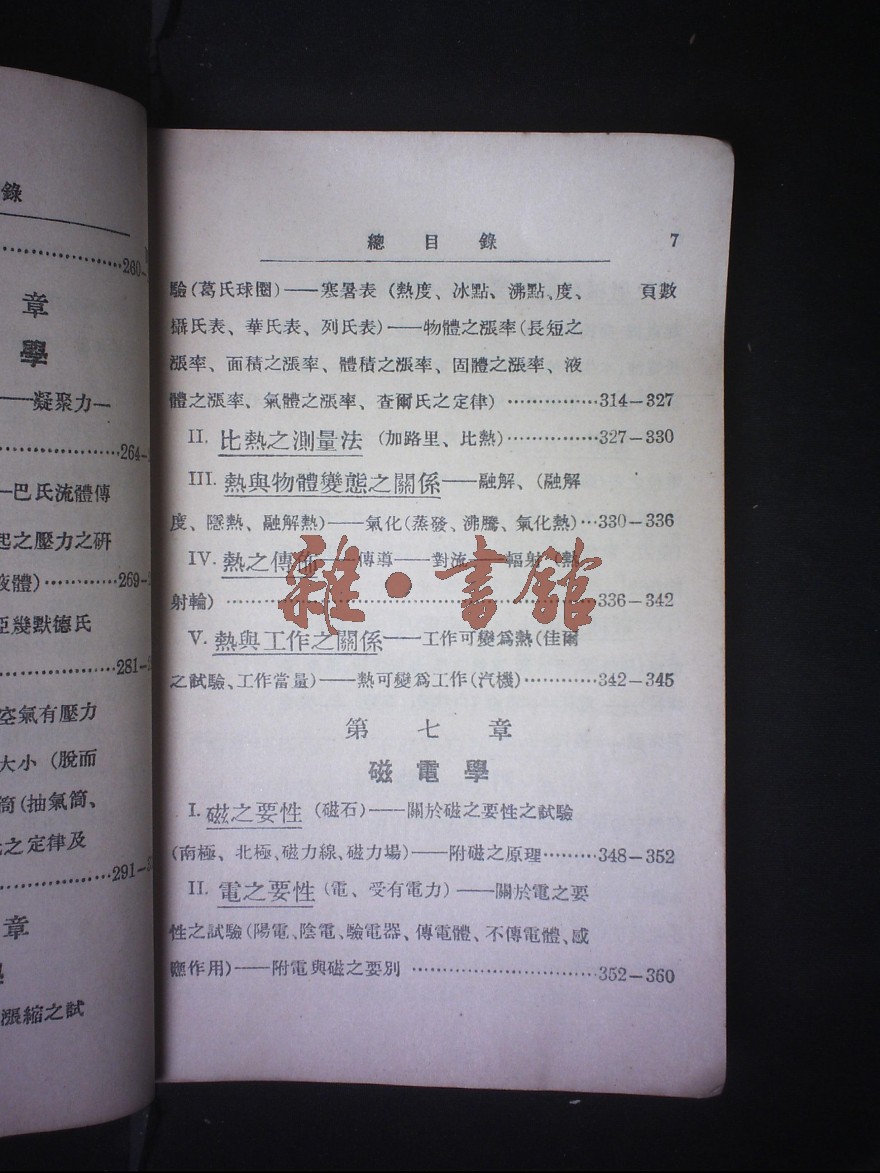 錄
260-
章
學
——凝聚力—
264-
—巴氏流體傳
起之壓力之硏
液體)…………269-
亞幾默德氏
281-
空氣有壓力
大小 (脫而
筒(抽氣筒、
之定律及
291-
章
漲縮之試
總目錄 7
驗(葛氏球圈)——寒暑表 (熱度、冰點、沸點、度、 頁數
攝氏表、華氏表、列氏表)——物體之漲率(長短之
漲率、面積之漲率、體積之漲率、固體之漲率、液
體之漲率、氣體之漲率、查爾氏之定律) ……………314—327
II. 比熱之測量法 (加路里、比熱)……………327—330
III. 熱與物體變態之關係——融解、(融解
度、隱熱、融解熱)——氣化(蒸發、沸騰、氣化熱)…330—336
IV. 熱之傳佈——傳導——對流——輻射(熱
射輪) ……………336—342
V. 熱與工作之關係——工作可變爲熱(佳爾
之試驗、工作當量)——熱可變爲工作(汽機)…………342—345
第七章
磁電學
I. 磁之要性 (磁石)——關於磁之要性之試驗
(南極、北極、磁力線、磁力場)——附磁之原理………348—352
II. 電之要性 (電、受有電力)——關於電之要
性之試驗(陽電、陰電、驗電器、傳電體、不傳電體、感
應作用)——附電與磁之要別 ……………352—360
雜·書館